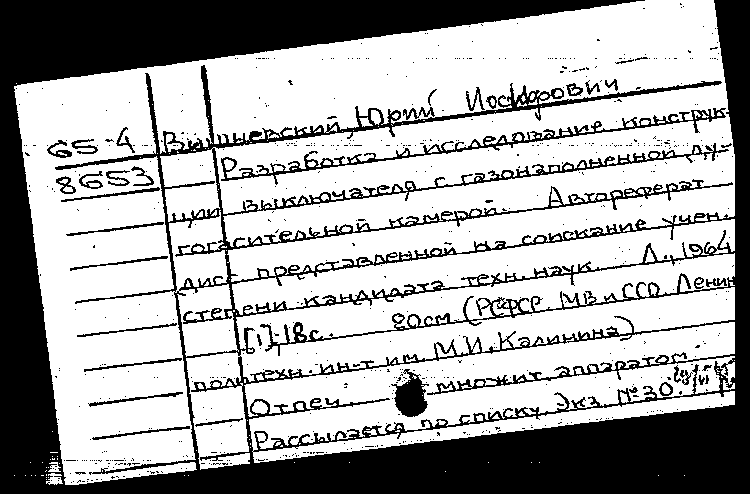 65-4 Вишневский, Юрий Иосифович
8653 Разработка и исследование конструк-
ции выключателя с газонаполненной ду-
гогасительной камерой. Автореферат
дисс. представленной на соискание учен.
степени кандидата техн. наук. Л., 1964
[1], 18 с. 20 см (РСФСР. МВ и ССО. Ленин
политехн. ин-т им. М.И. Калинина)
Отпеч. множит. аппаратом.
Рассылается по списку. Экз. № 30.